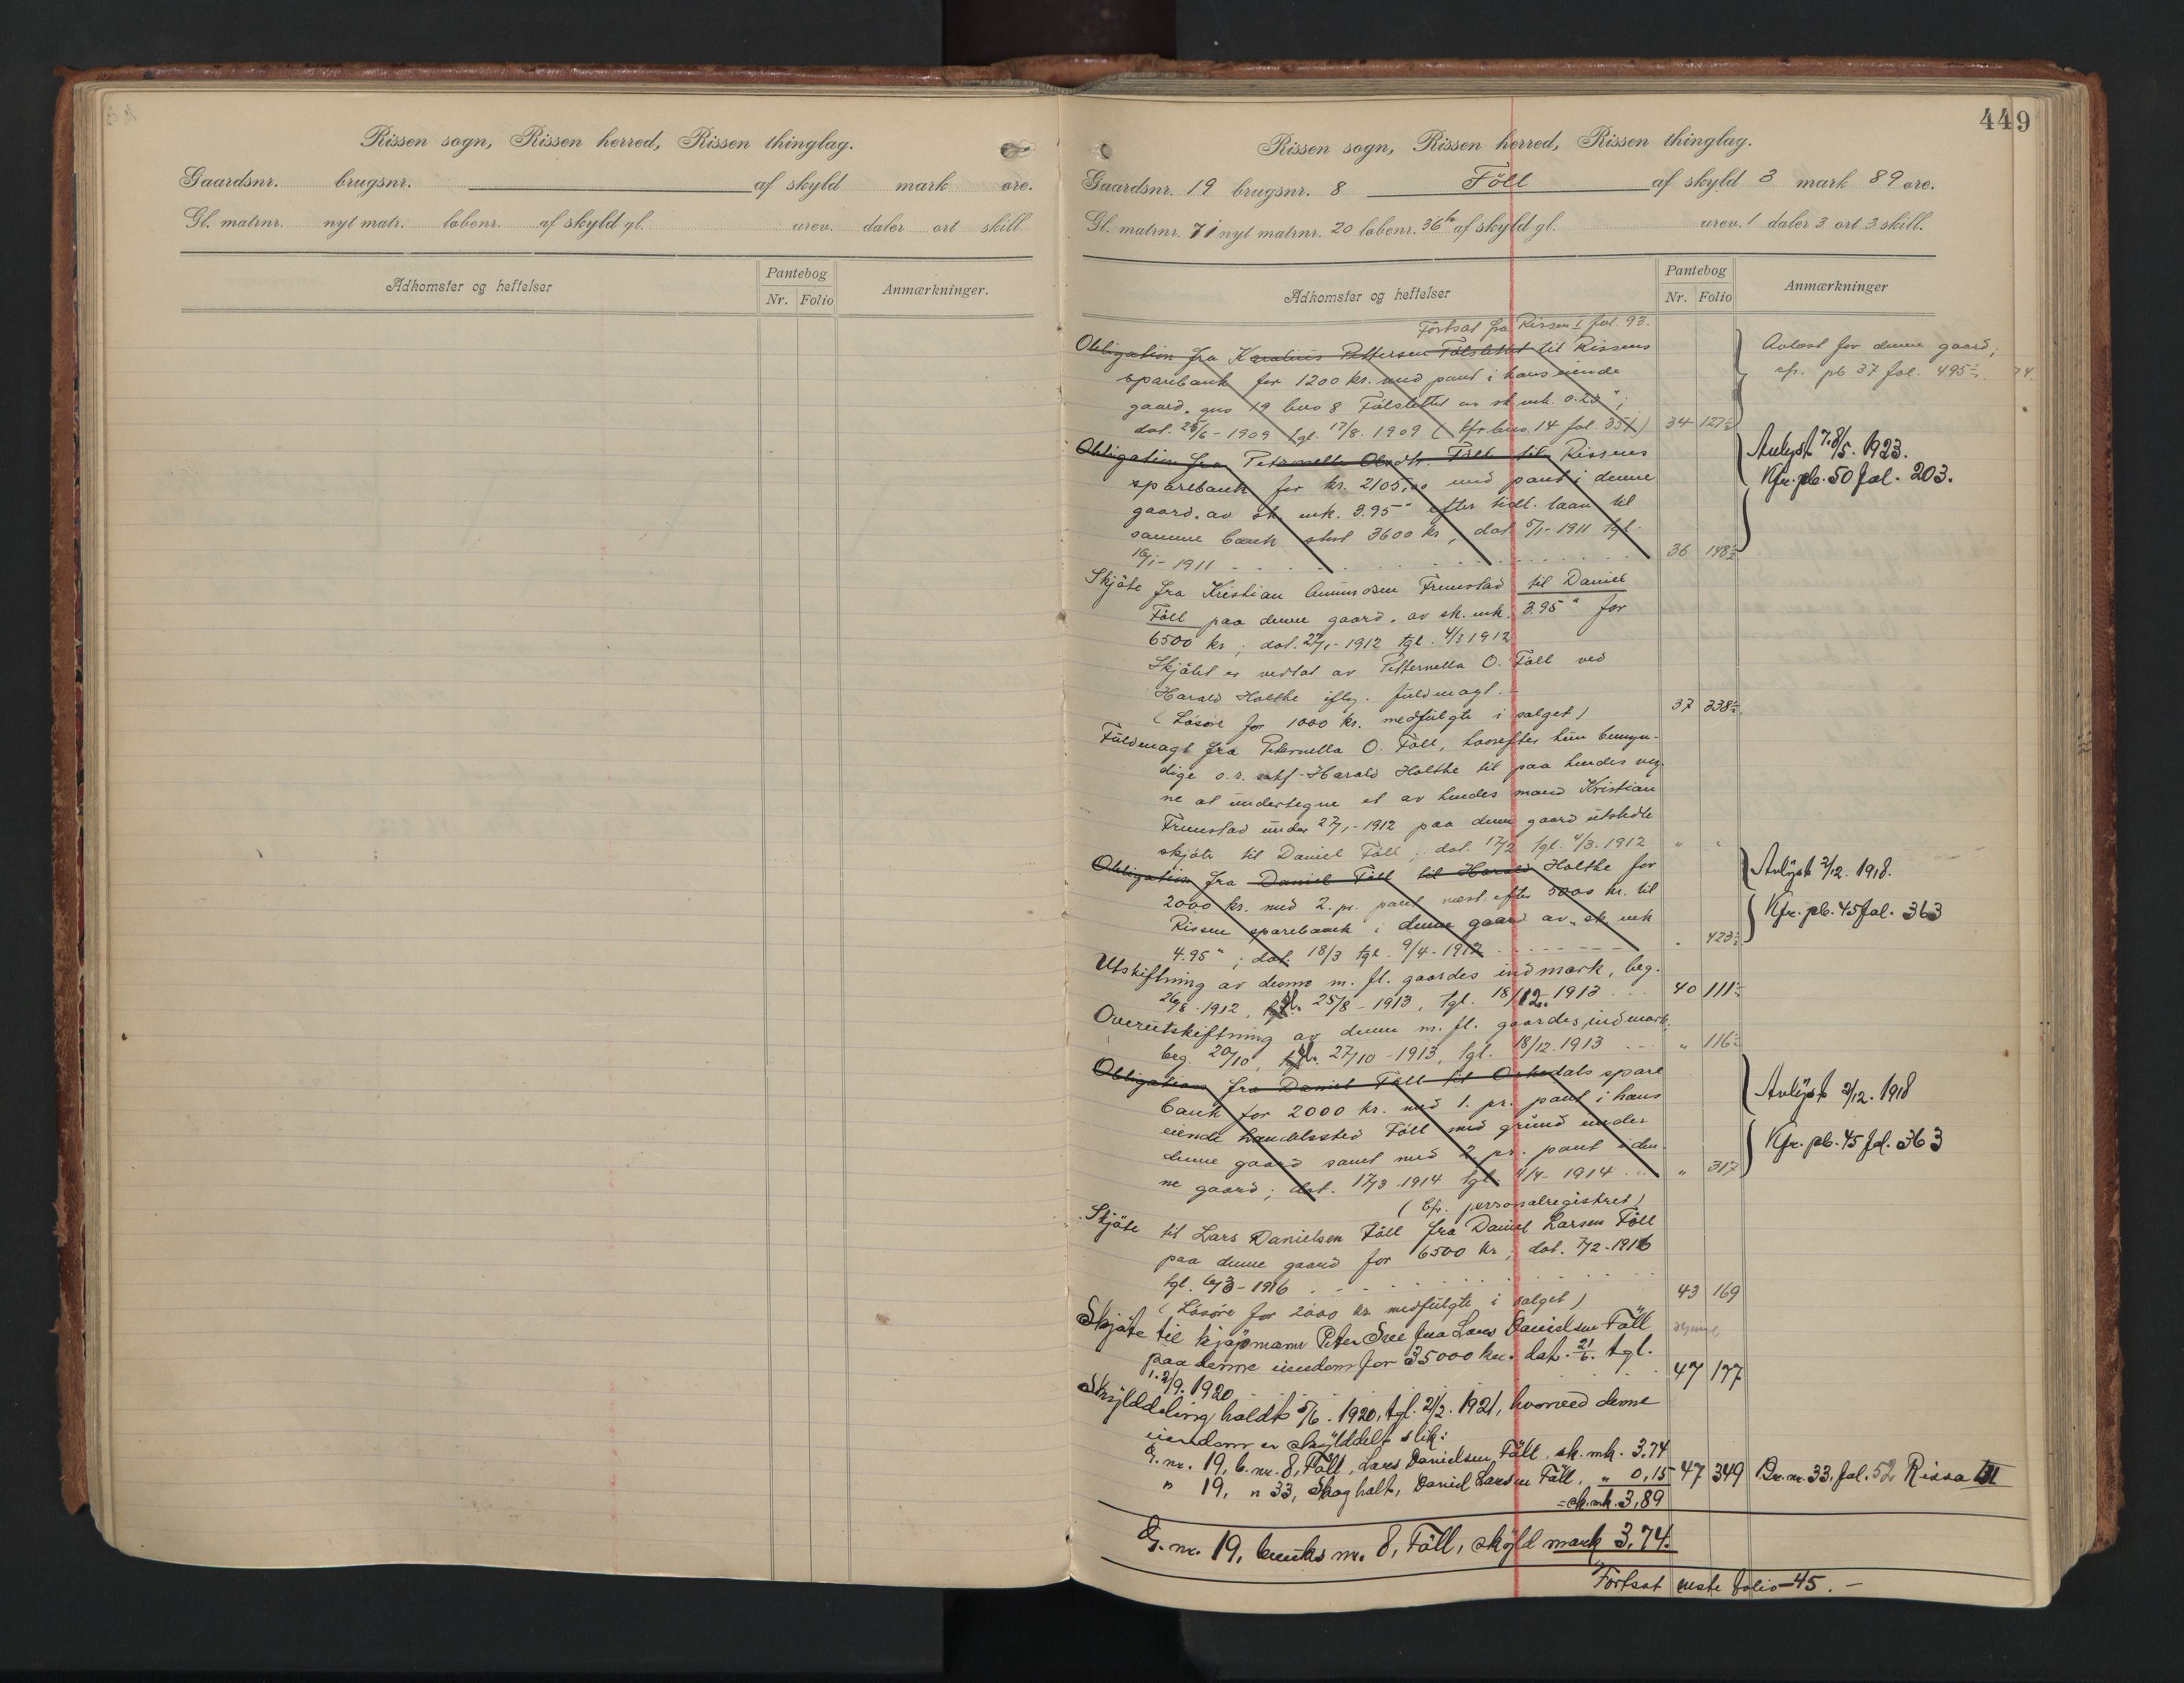 Rissen sogn, Rissen herred, Rissen thinglag.
Gaardsnr. brugsnr. af skyld mark øre.
Gl. matrnr. nyt matr. løbenr. af skyld gl. urev. daler ort skill.
Adkomster og heftelser
Pantebog
Nr. Folio
Anmærkninger.
449
Rissen sogn, Rissen herred, Rissen thinglag.
Gaardsnr. 19 brugsnr. 8 Föll af skyld 3 mark 89 øre.
Gl. matrnr. 71 nyt matrnr. 20 løbenr. 36 b af skyld gl. urev. 1 daler 3 ort 3 skill.
Adkomster og heftelser
Pantebog
Nr. Folio
Anmærkninger
Fortsat fra Rissen I fol. 93.
Obligation fra Pettersen til Rissens
Avløst for denne gaard,
sparebank for 1200 kr. med pant i hans eiende
cfr. pb 37 fol. 495
gaard, gno 19 bno 8 av sk. mk. 0.25 ;
dat. 25/6 - 1909 tgl. 17/8. 1909 ( kfr bno. 14 fol. 351) 34 127
Obligation fra Petronella Olsdtr. Föll til Rissens
Avlyst 7.8/5. 1923.
sparebank for kr. 2105,00 med pant i denne
Kfr. pb. 50 fol. 203.
gaard, av sk. mk. 3.95 efter tidl. laan til
samme bank stort 3600 kr, dat 5/1 - 1911 tgl.
16/1 - 1911 36 148
Skjöte fra Kristian Frunstad til Daniel
Föll paa denne gaard, av sk. mk. 3.95 for
6500 kr ; dat. 27/1 - 1912 tgl. 4/3 1912
Skjötet er vedtat av Petternella O. Föll ved
Harald Holthe iflg. fuldmagt. 37 338
( Lösöre for 1000 kr. medfulgte i salget )
Fuldmagt fra Peternella O. Föll, hvorefter hun bemyn-
dige o.r. sakf. Harald Holthe til paa hendes veg-
ne at undertegne et av hendes mand Kristian
Frunstad under 27/1 - 1912 paa denne gaard utstedte
skjöte til Daniel Föll ; dat. 17/2 tgl. 4/3. 1912 " "
Obligation fra Daniel Föll til Harald Holthe for
Avlyst 2/12. 1918.
2000 kr. med 2. pr. pant næst efter 5000 kr. til
Kfr. pb. 45 fol. 363
Rissen sparebank i denne gaard av sk. mk
4.95 ; dat. 18/3 tgl. 9/4 - 1912 " 423
Utskiftning av denne m. fl. gaardes indmark, beg.
26/8 - 1912, 25/8 - 1913, tgl. 18/12. 1913 40 111
Overutskiftning av denne m. fl. gaardes indmark,
beg. 20/10, 27/10 - 1913, tgl. 18/12. 1913 " 116
Obligation fra Daniel Föll til Orkedals spare
Avlyst 2/12. 1918
bank for 2000 kr. med 1. pr. pant i hans
Kfr. pb. 45 fol. 363
eiende handelssted Föll med grund under
denne gaard samt med 2. pr. pant i den-
ne gaard ; dat. 17/3 - 1914 tgl. 4/4 - 1914 " 317
( Cfr. personalregistret )
Skjöte til Lars Danielsen Föll fra Daniel Larsen Föll
paa denne gaard for 6500 kr ; dat. 7/2 - 1916
tgl. 6/3 - 1916 43 169
( Lösöre for 2000 kr medfulgte i salget )
Skjöte til kjøpmann Peter Sve fra Lars Danielsen Föll
paa denne eiendom for 35000 kr. dat. 21/6. tgl.
1.2/9. 1920. 47 177
Skylddeling holdt 5/6. 1920, tgl. 21/2. 1921, hvorved denne
eiendom er skylddelt slik:
G. nr. 19, b. nr. 8, Föll, Lars Danielsen Föll, sk. mk. 3.74
" 19, " 33, Skoghalt, Daniel Larsen Föll, " 0,15 47 349 Br. nr. 33. fol. 52 Rissa III
= sk. mk. 3,89
G. nr. 19, bruks nr. 8, Föll, skyld mark 3,74.
Fortsat neste folio - 45. -